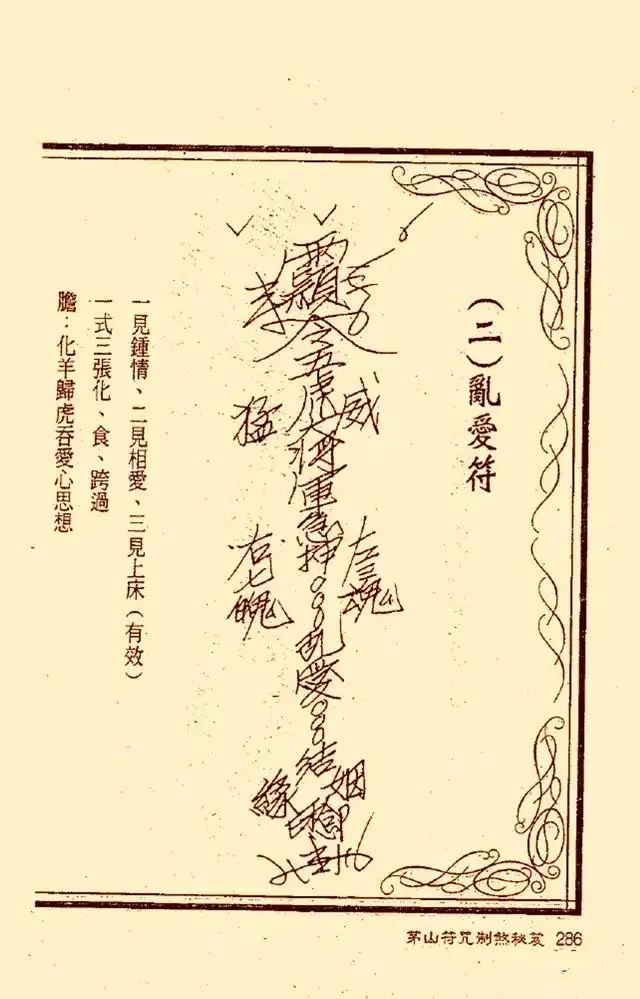 （二）亂愛符
令五虎大將軍急押
威
猛
左三魂
右七魄
乱愛
結
姻
緣
一見鍾情、二見相愛、三見上床（有效）
一式三張化、食、跨過
膽：化羊歸虎吞愛心思想
茅山符咒制煞秘笈 286